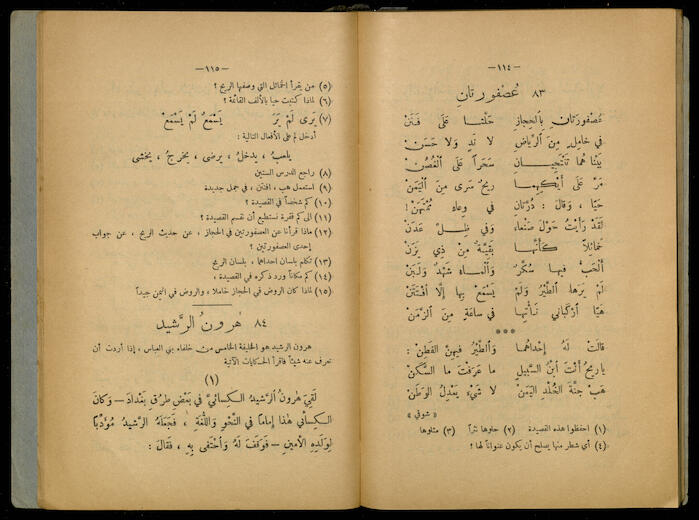 — ١١٤ —
٨٣ عُصْفُورتانِ
عُصْفُورَتَانِ بِالْحِجَازِ حَلَّتَا عَلَى فَنَنْ
في خَامِلٍ مِنَ الرِّيَاضِ لَا نَدٍ وَلَا حَسَنْ
بَيْنَا هُمَا تَنْتَجِيَانِ سَحَرًا عَلَى الْغُصُنْ
مَرَّ عَلَى أَيْكِهِمَا رِيحٌ سَرَى مِنَ الْيَمَنْ
حَيَّا ، وَقَالَ : دُرَّتَانِ في وِعَاءٍ مُمْتَهَنْ!
لَقَدْ رَأَيْتُ حَوْلَ صَنْعَاءَ وَفي ظِلِّ عَدَنْ
خَمَائِلًا كَأَنَّهَا بَقِيَّةٌ مِنْ ذِي يَزَنْ
الْحَبُّ فِيهَا سُكَّرٌ وَالْمَاءُ شَهْدٌ وَلَبَنْ
لَمْ يَرَهَا الطَّيْرُ وَلَمْ يَسْمَعْ بِهَا إِلَّا افْتَتَنْ
هَيَّا ارْكَبَانِي نَأْتِهَا في سَاعَةٍ مِنَ الزَّمَنْ
***
قَالَتْ لَهُ إِحْدَاهُمَا وَالطَّيْرُ فِيهِنَّ الْفَطِنْ:
يَا رِيحُ أَنْتَ ابْنُ السَّبِيلِ مَا عَرَفْتَ مَا السَّكَنْ
هَبْ جَنَّةَ الْخُلْدِ الْيَمَنْ لَا شَيْءَ يَعْدِلُ الْوَطَنْ
« شوقي »
(١) احفظوا هذه القصيدة (٢) حلوها نثراً (٣) مثلوها
(٤) أي شطر منها يصلح أن يكون عنواناً لها ؟
— ١١٥ —
(٥) من يقرأ الخمائل التي وصفها الريح ؟
(٦) لماذا كتبت حيا بالألف القائمة ؟
(٧) يَرى لَمْ يَرَ يَسْمَعُ لَمْ يَسْمَعْ
أدخل لم على الأفعال التالية :
يلعب ، يدخل ، يرضى ، يخرج ، يخشى
(٨) راجع الدرس الستين
(٩) استعمل هب ، افتتن ، في جمل جديدة
(١٠) كم شخصاً في القصيدة ؟
(١١) الى كم فقرة نستطيع أن نقسم القصيدة ؟
(١٢) ماذا قرأنا عن العصفورتين في الحجاز ، عن حديث الريح ، عن جواب
إحدى العصفورتين ؟
(١٣) تكلم بلسان احداهما ، بلسان الريح
(١٤) كم مكاناً ورد ذكره في القصيدة ،
(١٥) لماذا كان الروض في الحجاز خاملا ، والروض في اليمن جيداً
٨٤ هُرونُ الرَّشيد
هرون الرشيد هو الخليفة الخامس من خلفاء بني العباس ، إذا أردت أن
تعرف عنه شيئاً فاقرأ الحكايات الآتية
(١)
لَقِيَ هٰرُونُ الرَّشِيدُ الْكِسَائِيَّ في بَعْضِ طُرُقِ بَغْدَادَ — وَكَانَ
الْكِسَائِيُّ هٰذَا إِمَامًا في النَّحْوِ وَاللُّغَةِ ، فَجَعَلَهُ الرَّشِيدُ مُؤَدِّبًا
لِوَلَدِهِ الْأَمِينِ — فَوَقَفَ لَهُ وَاحْتَفَى بِهِ ، فَقَالَ :